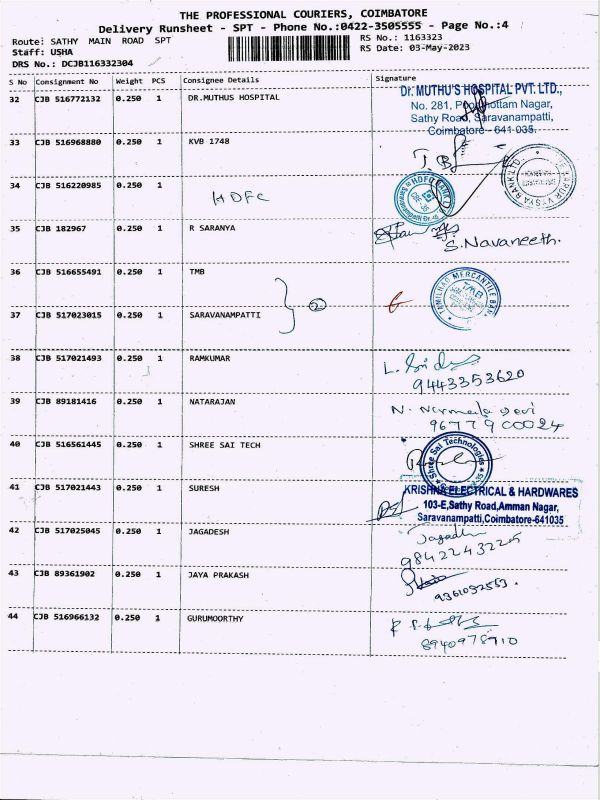 THE PROFESSIONAL COURIERS, COIMBATORE
Delivery Runsheet - SPT - Phone No.:0422-3505555 - Page No.:4
Route: SATHY MAIN ROAD SPT
RS No.: 1163323
Staff: USHA
RS Date: 03-May-2023
DRS No.: DCJB116332304
S No Consignment No Weight PCS Consignee Details Signature
32 CJB 516772132 0.250 1 DR.MUTHUS HOSPITAL
Dr. MUTHU'S HOSPITAL PVT. LTD.,
No. 281, Purushottam Nagar,
Sathy Road, Saravanampatti,
Coimbatore - 641 035.
33 CJB 516968880 0.250 1 KVB 1748
34 CJB 516220985 0.250 1 HDFC
HDFC BANK
35 CJB 182967 0.250 1 R SARANYA
S. Navaneeth.
36 CJB 516655491 0.250 1 TMB
TAMILNAD MERCANTILE BANK
TMB
2
37 CJB 517023015 0.250 1 SARAVANAMPATTI
38 CJB 517021493 0.250 1 RAMKUMAR
9443353620
39 CJB 89181416 0.250 1 NATARAJAN
N. Nirmala Devi
9677900024
40 CJB 516561445 0.250 1 SHREE SAI TECH
Shree Sai Technologies
41 CJB 517021443 0.250 1 SURESH
KRISHNA ELECTRICAL & HARDWARES
103-E,Sathy Road,Amman Nagar,
Saravanampatti,Coimbatore-641035
42 CJB 517025045 0.250 1 JAGADESH
43 CJB 89361902 0.250 1 JAYA PRAKASH
44 CJB 516966132 0.250 1 GURUMOORTHY
8940978910